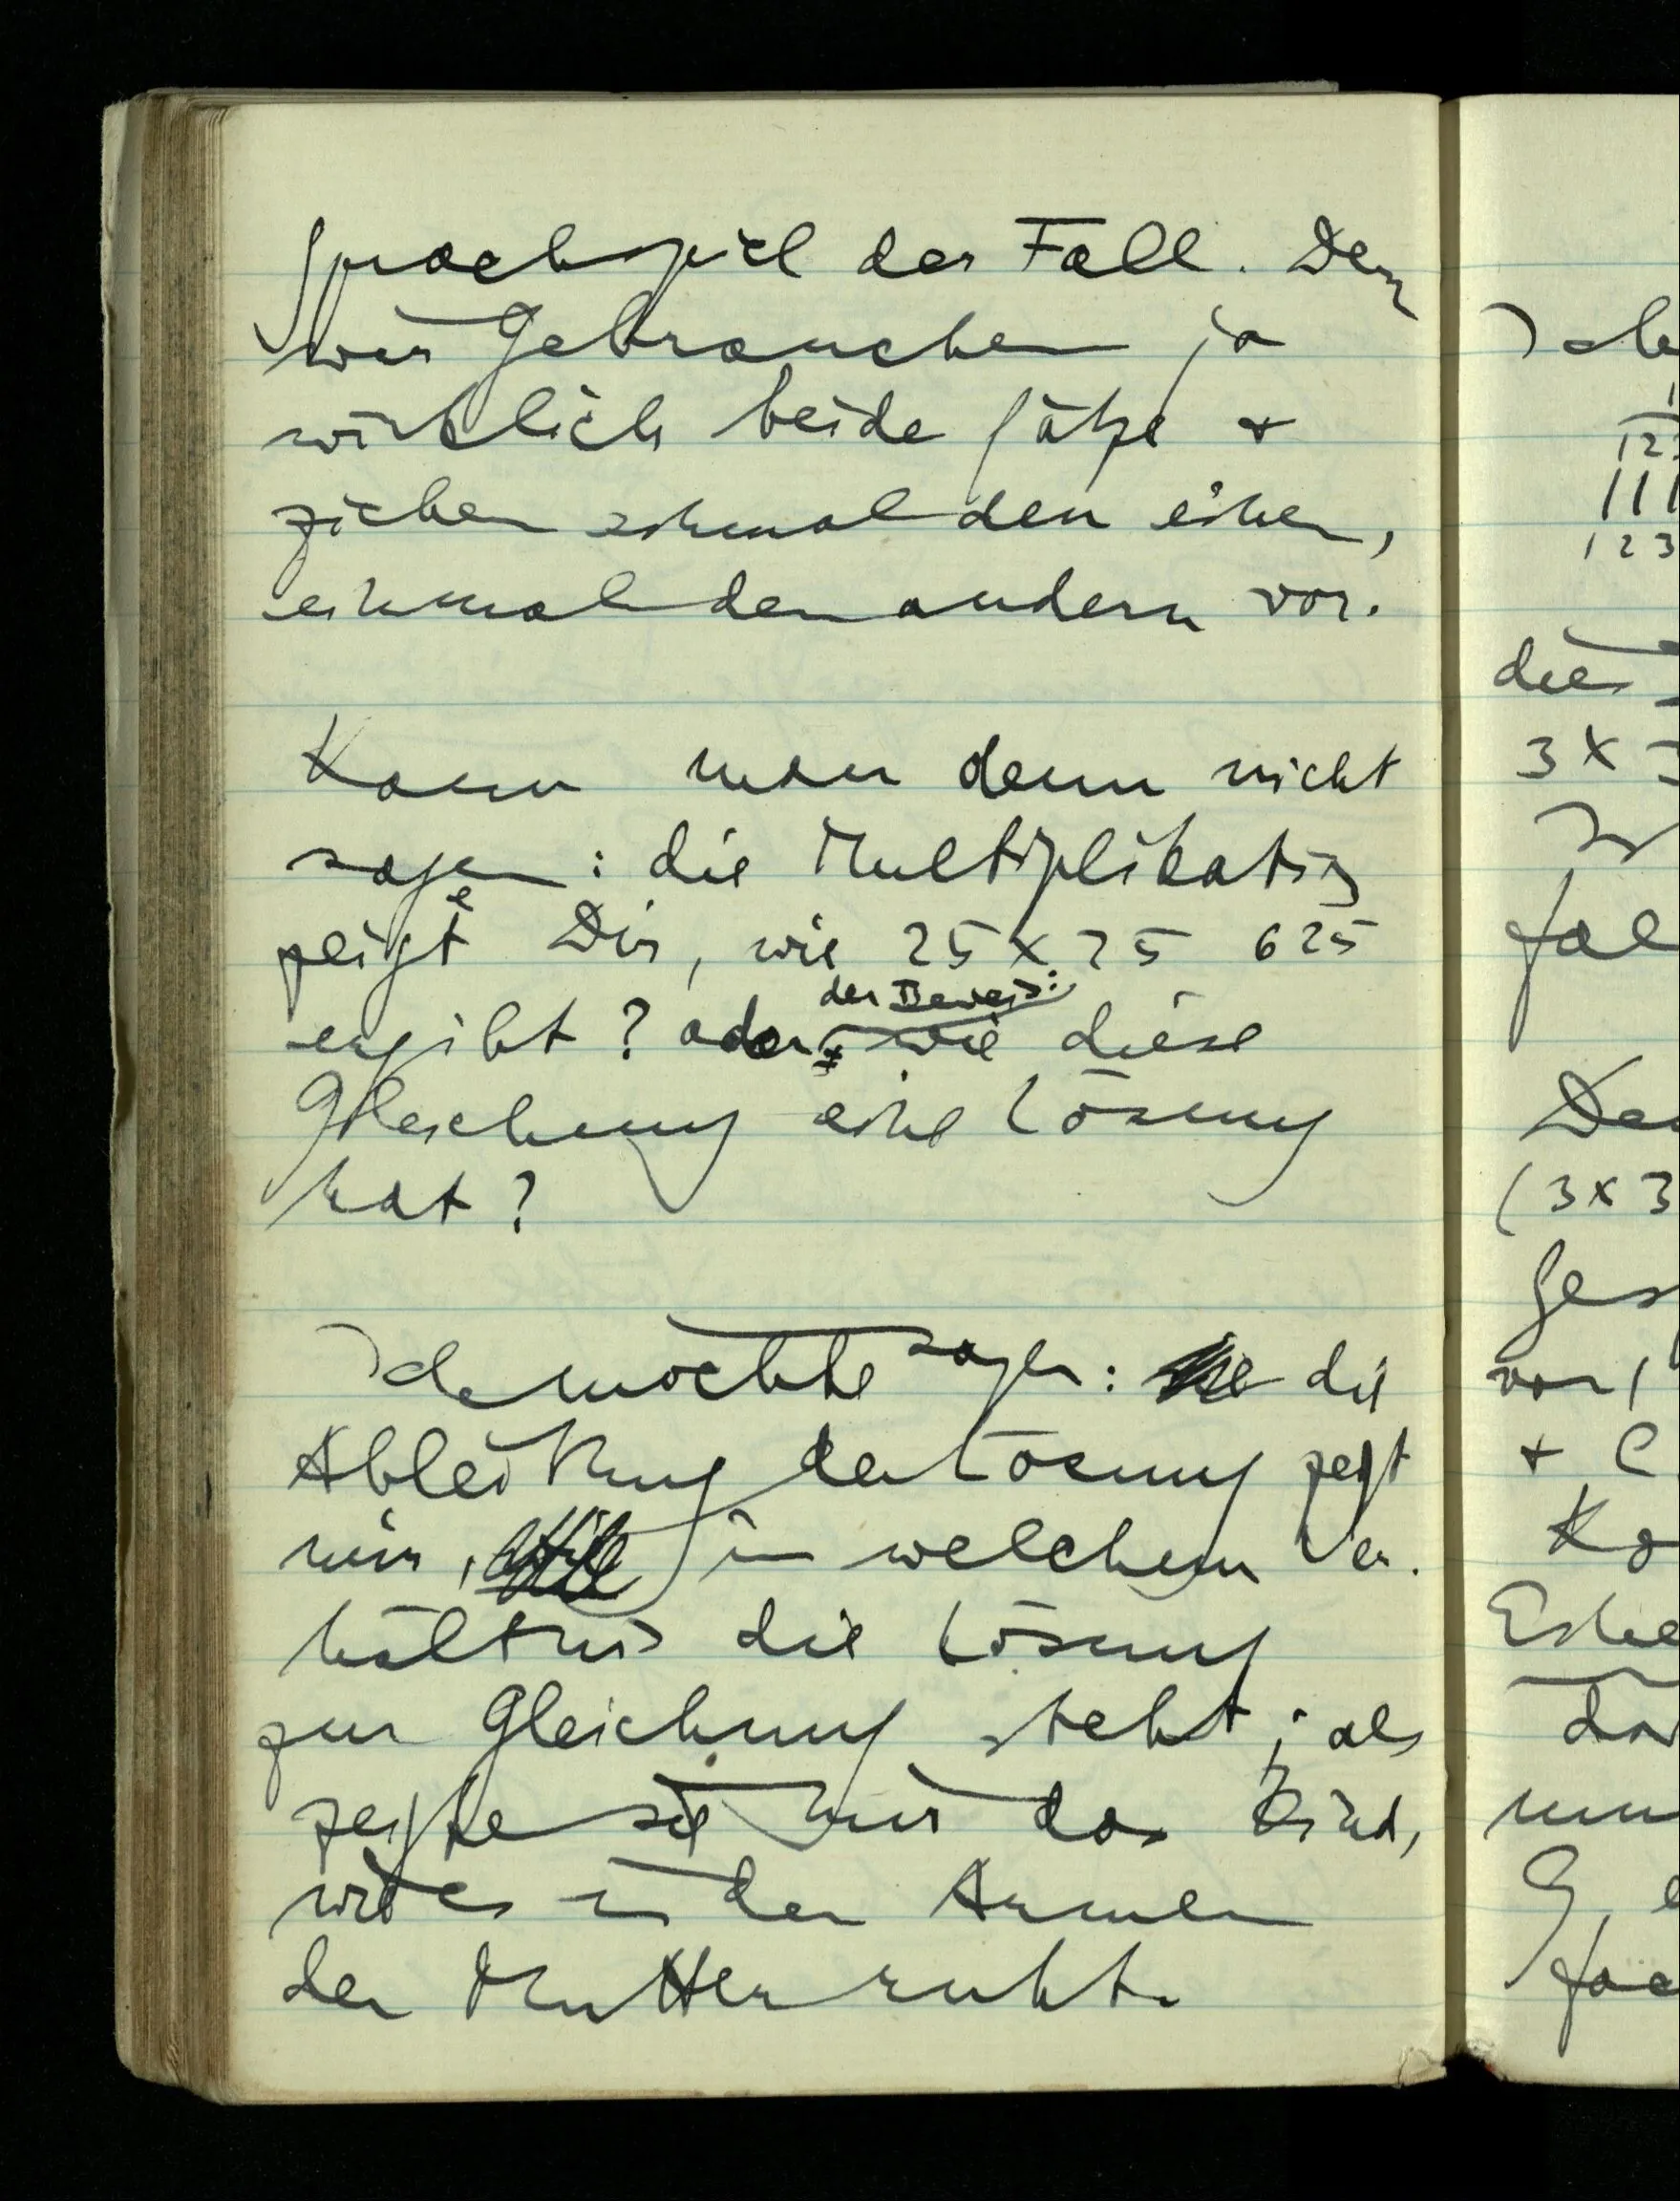 Sprachspiel der Fall. Denn
wir gebrauchen ja
wirklich beide Sätze &
ziehen einmal den einen,
einmal den andern vor.
Kann man denn nicht
sagen: die Multiplikation
zeigte Dir, wie 25 x 25 625
ergibt? oder der Beweis: wie diese
Gleichung eine Lösung
hat?
Ich möchte sagen: die
Ableitung der Lösung zeigt
mir, in welchem Ver-
hältnis die Lösung
zur Gleichung steht; als
zeigte sie mir das Kind,
wie es in den Armen
der Mutter ruht.
Ich
123
111
123
die
3 x 3
(3 x 3
vor,